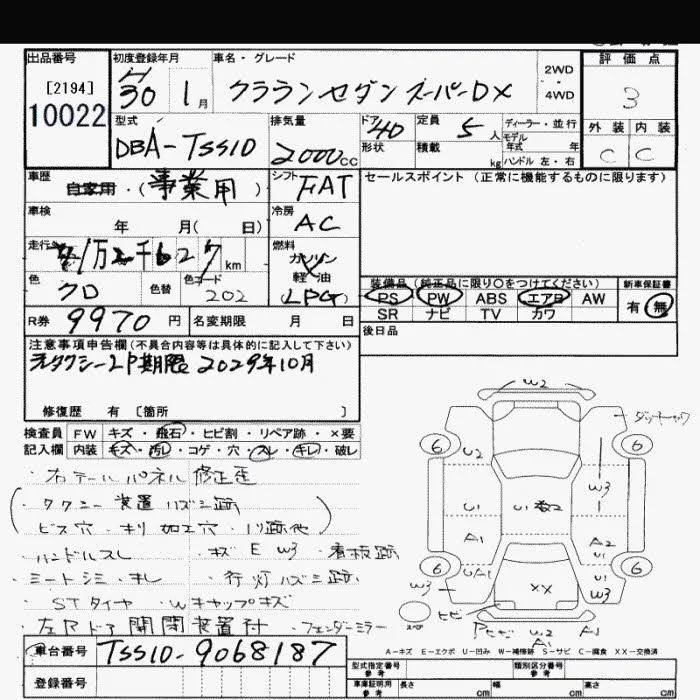 出品番号
[2194]
10022
初度登録年月
H
30 1月
車名・グレード
クラウンセダン スーパーDX
2WD
・
4WD
評価点
3
外装 内装
C C
型式
DBA-TSS10
排気量
2000cc
ドア 4D
形状
定員 5人
積載 kg
ディーラー・並行
モデル
年式 年
ハンドル 左・右
車歴
自家用・(事業用)
シフト FAT
セールスポイント（正常に機能するものに限ります）
車検
年 月( 日)
冷房
AC
走行
万2千627km
燃料
ガソリン
軽油
(LPG)
色
クロ
色替
色コード
202
装備品（純正品に限り○をつけてください）
PS PW ABS エアB AW
SR ナビ TV カワ
新車保証書
有・無
R券 9970円
名変期限 月 日
後日品
注意事項申告欄(不具合内容等は具体的に記入して下さい)
元タクシー LP期限 2029年10月
修復歴 有 〔箇所 〕
検査員 FW キズ・飛石・ヒビ割・リペア跡・×要
記入欄 内装 キズ・汚レ・コゲ・穴・スレ・キレ・破レ
・右テールパネル修正歪
・タクシー装置ハズシ跡
ビス穴・キリ加工穴・ノリ跡他
・ハンドルスレ ・キズ E W3 ・看板跡
・シートシミ・キレ ・行灯ハズシ跡
・STタイヤ ・Wキャップキズ
・左Rドア開閉装置付 ・フェンダーミラー
W2
6 6
U2
W3
U1 U1 数2
A1 A2
U1
UA1 U1
6 6
W3 XX W3
ヒビ
W2 A1
A1
A−キズ E−エクボ U−凹み W−補修跡 S−サビ C−腐食 XX−交換済
車台番号 TSS10-9068187
登録番号
型式指定番号
参考
類別区分番号
参考
車庫証明用
参考
長さ cm 幅 cm 高さ cm